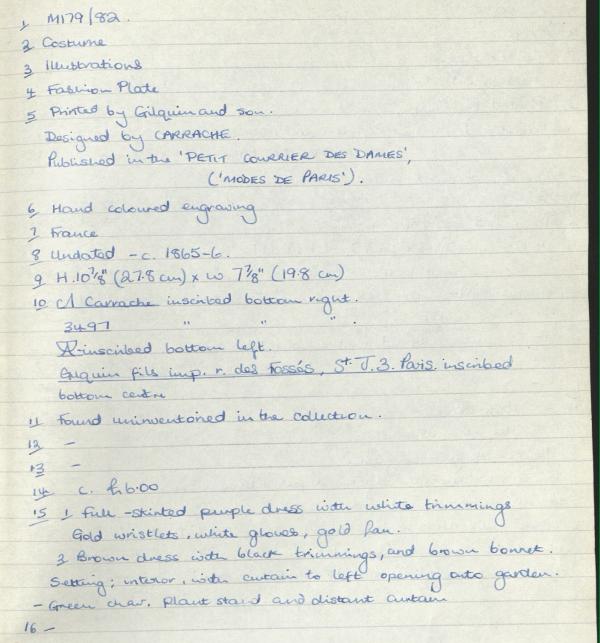 1 M179/82.
2 Costume
3 Illustrations
4 Fashion Plate
5 Printed by Gilquin and son.
Designed by CARRACHE.
Published in the 'PETIT COURRIER DES DAMES',
('MODES DE PARIS').
6 Hand coloured engraving
7 France
8 Undated - c. 1865-6.
9 H. 10 7/8" (27.8 cm) x W 7 7/8" (19.8 cm)
10 A Carrache inscribed bottom right.
3497 " " " .
inscribed bottom left.
Gilquin fils imp. r. des Fossés, St. J. 3. Paris inscribed
bottom centre
11 Found uninventoried in the collection.
12 -
13 -
14 c. £6.00
15 1 Full-skirted purple dress with white trimmings
Gold wristlets, white gloves, gold fan.
2 Brown dress with black trimmings, and brown bonnet.
Setting; interior, with curtain to left opening onto garden.
- Green chair, plant stand and distant curtain
16 -